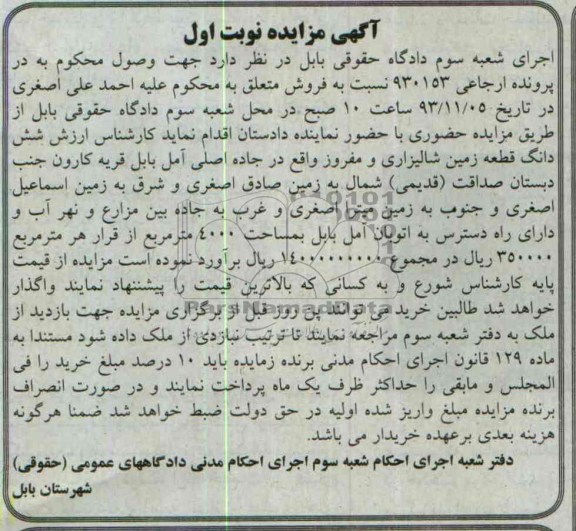 آگهی مزایده نوبت اول
اجرای شعبه سوم دادگاه حقوقی بابل در نظر دارد جهت وصول محکوم به در
پرونده ارجاعی ۹۳۰۱۵۳ نسبت به فروش متعلق به محکوم علیه احمد علی اصغری
در تاریخ ۹۳/۱۱/۰۵ ساعت ۱۰ صبح در محل شعبه سوم دادگاه حقوقی بابل از
طریق مزایده حضوری با حضور نماینده دادستان اقدام نماید کارشناس ارزش شش
دانگ قطعه زمین شالیزاری و مفروز واقع در جاده اصلی آمل بابل قریه کارون جنب
دبستان صداقت (قدیمی) شمال به زمین صادق اصغری و شرق به زمین اسماعیل
اصغری و جنوب به زمین اصغری و غرب به جاده بین مزارع و نهر آب و
دارای راه دسترس به اتوبان آمل بابل بمساحت ۴۰۰۰ مترمربع از قرار هر مترمربع
۳۵۰۰۰۰ ریال در مجموع ۱۴۰۰۰۰۰۰۰۰ ریال برآورد نموده است مزایده از قیمت
پایه کارشناس شورع و به کسانی که بالاترین قیمت را پیشنهاد نمایند واگذار
خواهد شد طالبین خرید می توانند پنج روز قبل از برگزاری مزایده جهت بازدید از
ملک به دفتر شعبه سوم مراجعه نمایند تا ترتیب بازدی از ملک داده شود مستندا به
ماده ۱۲۹ قانون اجرای احکام مدنی برنده زمایده باید ۱۰ درصد مبلغ خرید را فی
المجلس و مابقی را حداکثر ظرف یک ماه پرداخت نمایند و در صورت انصراف
برنده مزایده مبلغ واریز شده اولیه در حق دولت ضبط خواهد شد ضمنا هرگونه
هزینه بعدی برعهده خریدار می باشد.
دفتر شعبه اجرای احکام شعبه سوم اجرای احکام مدنی دادگاههای عمومی (حقوقی)
شهرستان بابل